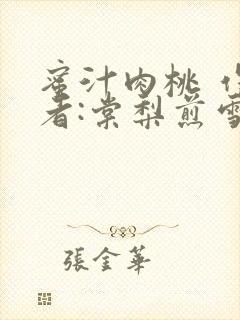 蜜汁肉桃 作
者:棠梨煎雪
張金華